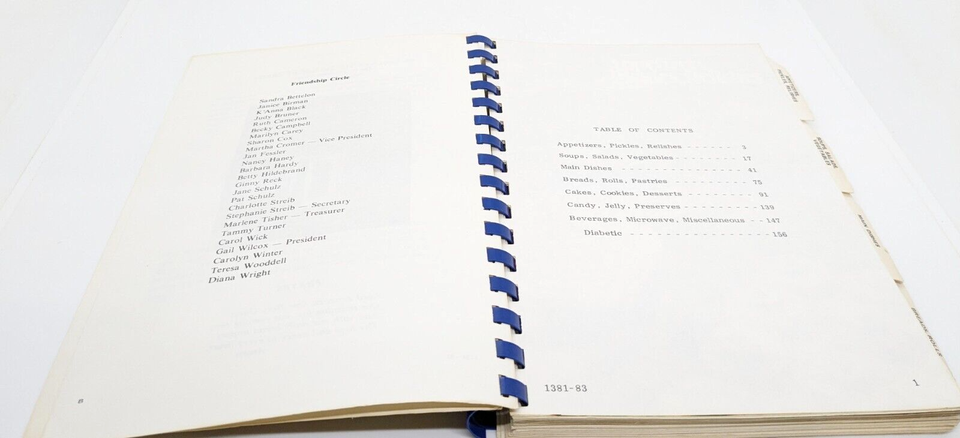 Friendship Circle
Sandra Bettelon
Janice Birman
K'Anna Black
Judy Bruner
Ruth Cameron
Becky Campbell
Marilyn Carey
Sharon Cox
Martha Cromer — Vice President
Jan Fessler
Nancy Haney
Barbara Hardy
Betty Hildebrand
Ginny Reck
Jane Schulz
Pat Schulz
Charlotte Streib
Stephanie Streib — Secretary
Marlene Tisher — Treasurer
Tammy Turner
Carol Wick
Gail Wilcox — President
Carolyn Winter
Teresa Wooddell
Diana Wright
TABLE OF CONTENTS
Appetizers, Pickles, Relishes - - - - - - - 3
Soups, Salads, Vegetables - - - - - - - - 17
Main Dishes - - - - - - - - - - - - - - - 41
Breads, Rolls, Pastries - - - - - - - - - 75
Cakes, Cookies, Desserts - - - - - - - - - 91
Candy, Jelly, Preserves - - - - - - - - - 139
Beverages, Microwave, Miscellaneous - - 147
Diabetic - - - - - - - - - - - - - - - - 156
1381-83
1